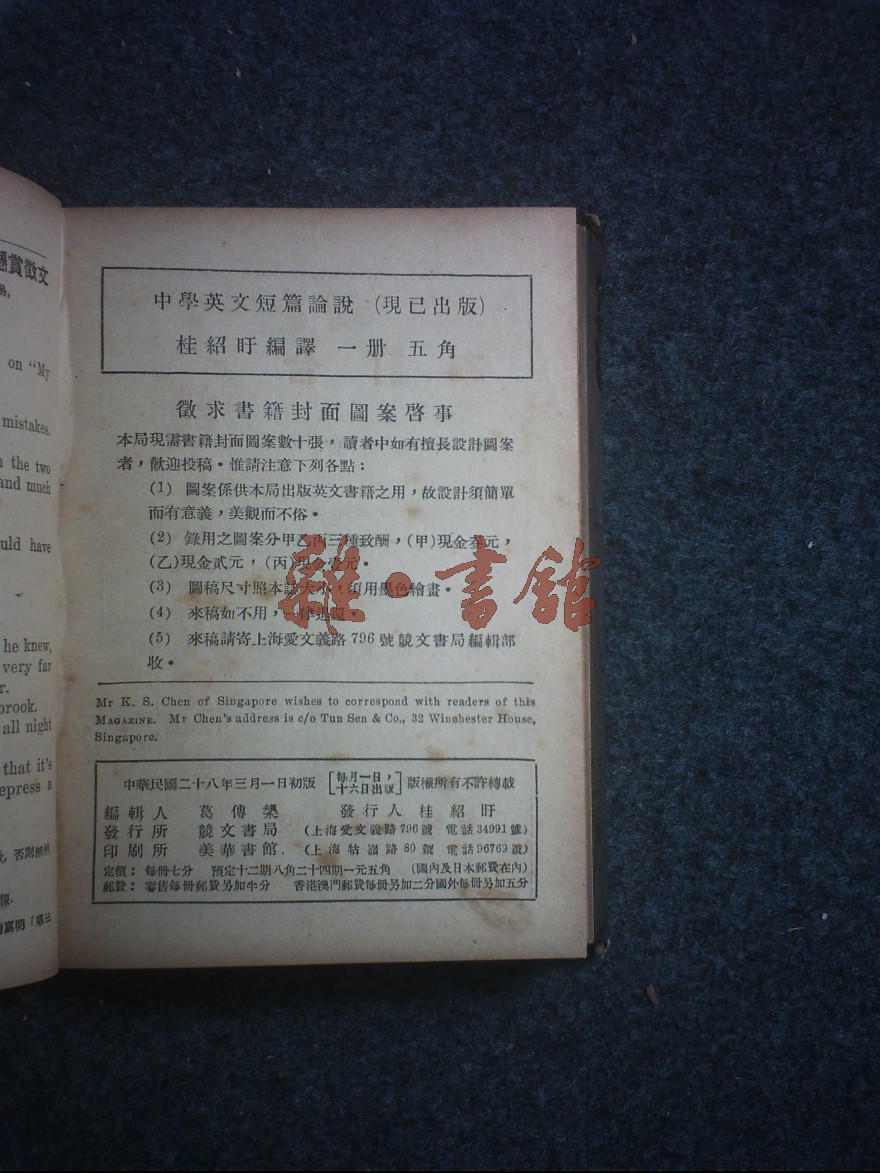 懸賞徵文
on "My
mistakes.
the two
and much
uld have
he knew,
very far
r.
brook.
all night
that it's
epress a
報.
中學英文短篇論說 (現已出版)
桂紹盱編譯 一册 五角
徵求書籍封面圖案啓事
本局現需書籍封面圖案數十張，讀者中如有擅長設計圖案
者，歡迎投稿。惟請注意下列各點：
(1) 圖案係供本局出版英文書籍之用，故設計須簡單
而有意義，美觀而不俗。
(2) 錄用之圖案分甲乙丙三種致酬，(甲)現金叁元，
(乙)現金貳元，(丙)現金壹元。
(3) 圖稿尺寸照本誌大小，須用墨色繪畫。
(4) 來稿如不用，一律退還。
(5) 來稿請寄上海愛文義路796號競文書局編輯部
收。
雜·書館
Mr K. S. Chen of Singapore wishes to correspond with readers of this
MAGAZINE. Mr Chen's address is c/o Tun Sen & Co., 32 Winchester House,
Singapore.
中華民國二十八年三月一日初版 [每月一日，十六日出版] 版權所有不許轉載
編輯人 葛傳槼 發行人 桂紹盱
發行所 競文書局 (上海愛文義路796號 電話34991號)
印刷所 美華書館 (上海牯嶺路80號 電話96769號)
定價： 每冊七分 預定十二期八角二十四期一元五角 (國內及日本郵費在內)
郵費： 零售每冊郵費另加半分 香港澳門郵費每冊另加二分國外每冊另加五分